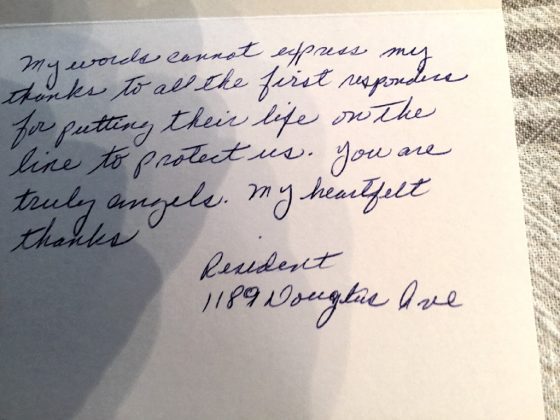 My words cannot express my
thanks to all the first responders
for putting their life on the
line to protect us. You are
truly angels. My heartfelt
thanks
Resident
1189 Douglas Ave